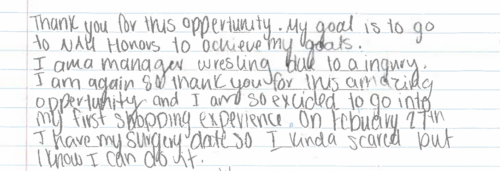 Thank you for this oppertunity. My goal is to go
to NAU Honors to achieve my goals.
I am a manager wresling due to a ingury.
I am again so thank you for this amazing
oppertunity and I am so excided to go into
my first shopping experience. On Febuary 27th
I have my surgery date so I kinda scared but
I know I can do it.